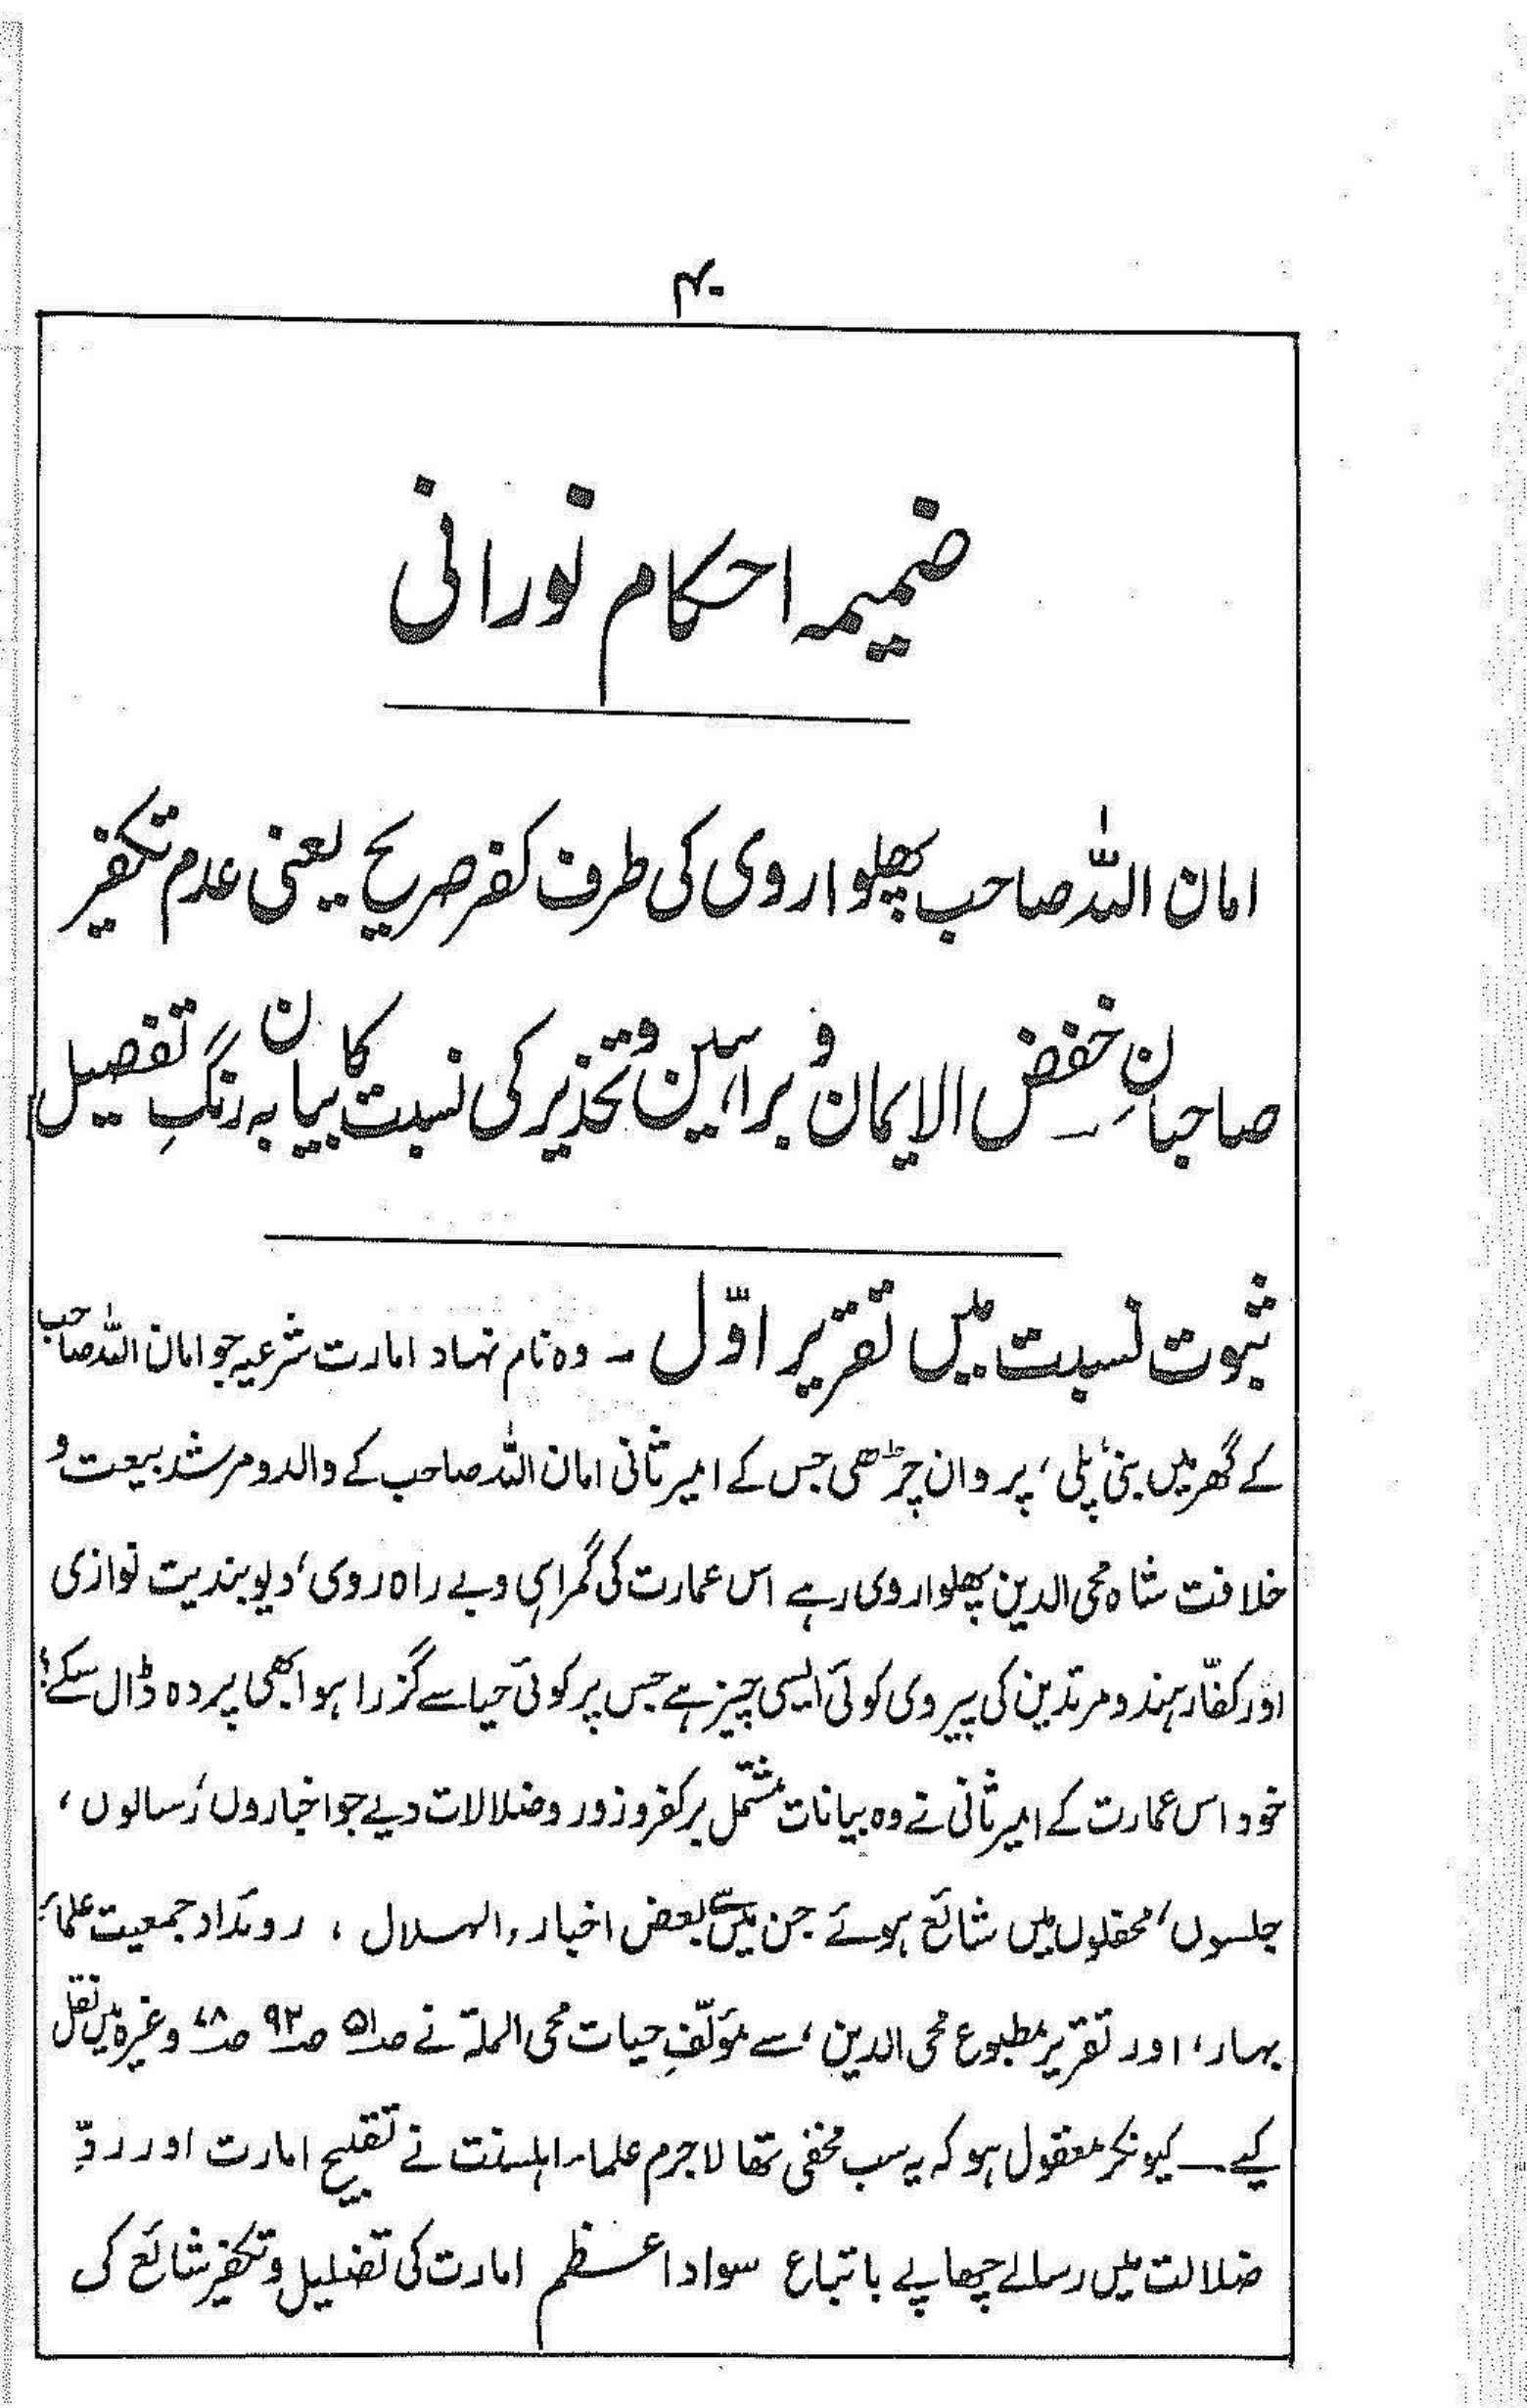 ۴۰
ضمیمہ احکام نورانی
امان اللہ صاحب پھلواروی کی طرف کفر صریح یعنی عدم تکفیر
صاحبانِ خفض الایمان و براہین و تحذیر کی نسبت کا بیان بہ رنگِ تفصیل
ثبوت نسبت میں تقریر اوّل ۔ وہ نام نہاد امارت شرعیہ جو امان اللہ صاحب
کے گھر میں بنی، پلی، پروان چڑھی جس کے امیر ثانی امان اللہ صاحب کے والد و مرشد بیعت و
خلافت شاہ محی الدین پھلواروی رہے اس عمارت کی گمراہی و بے راہ روی، دیوبندیت نوازی
اور کفّار ہند و مرتدین کی پیروی کوئی ایسی چیز ہے جس پر کوئی حیا سے گزرا ہوا بھی پردہ ڈال سکے؟
خود اس عمارت کے امیر ثانی نے وہ بیانات مشتمل بر کفر و زور و ضلالات دیے جو اخباروں، رسالوں،
جلسوں، محفلوں میں شائع ہوئے جن میں سے بعض اخبار، الہلال، روئداد جمعیت علمائے
بہار، اور تقریر مطبوع محی الدین، سے مؤلّفِ حیات محی الملۃ نے صہ۵۱ صہ۹۲ صہ۷۸ وغیرہ میں نقل
کیے ــ کیونکر معقول ہو کہ یہ سب مخفی تھا لاجرم علماء اہلسنت نے تقبیح امارت اور ردِّ
ضلالت میں رسالے چھاپے باتباع سواد اعظم امارت کی تضلیل و تکفیر شائع کی